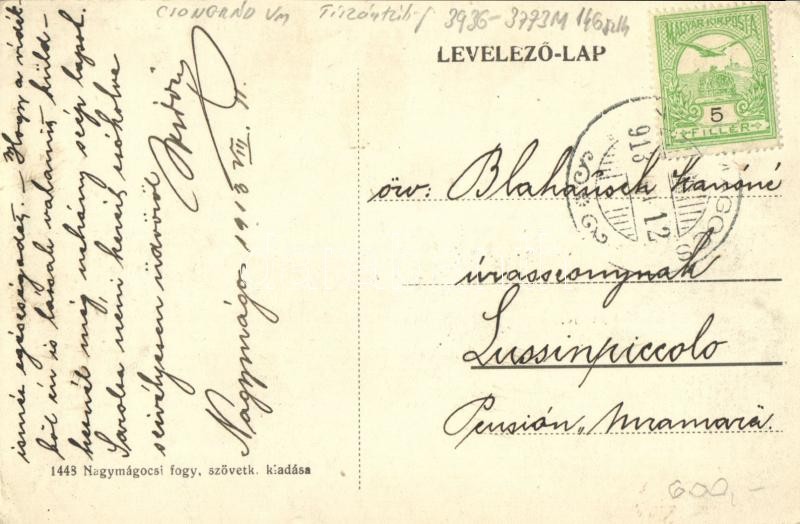 CSONGRÁD Vm Tiszántúl 3936-3773M
LEVELEZŐ-LAP
MAGYAR·KIR·POSTA
5
FILLÉR
913
12
özv: Blahausek Jánosné
úrasszonynak
Lussinpiccolo
Pensión „Miramará
ismét egészségedet. – Hogy a vidék-
ből én is lássak valamit, küld-
hetnél még néhány szép lapot.
Sarolta néni kezeit csókolva
szivélyesen üdvözöl
Nagymágo 1913 VIII. 11.
1448 Nagymágocsi fogy, szövetk. kiadása
600,-